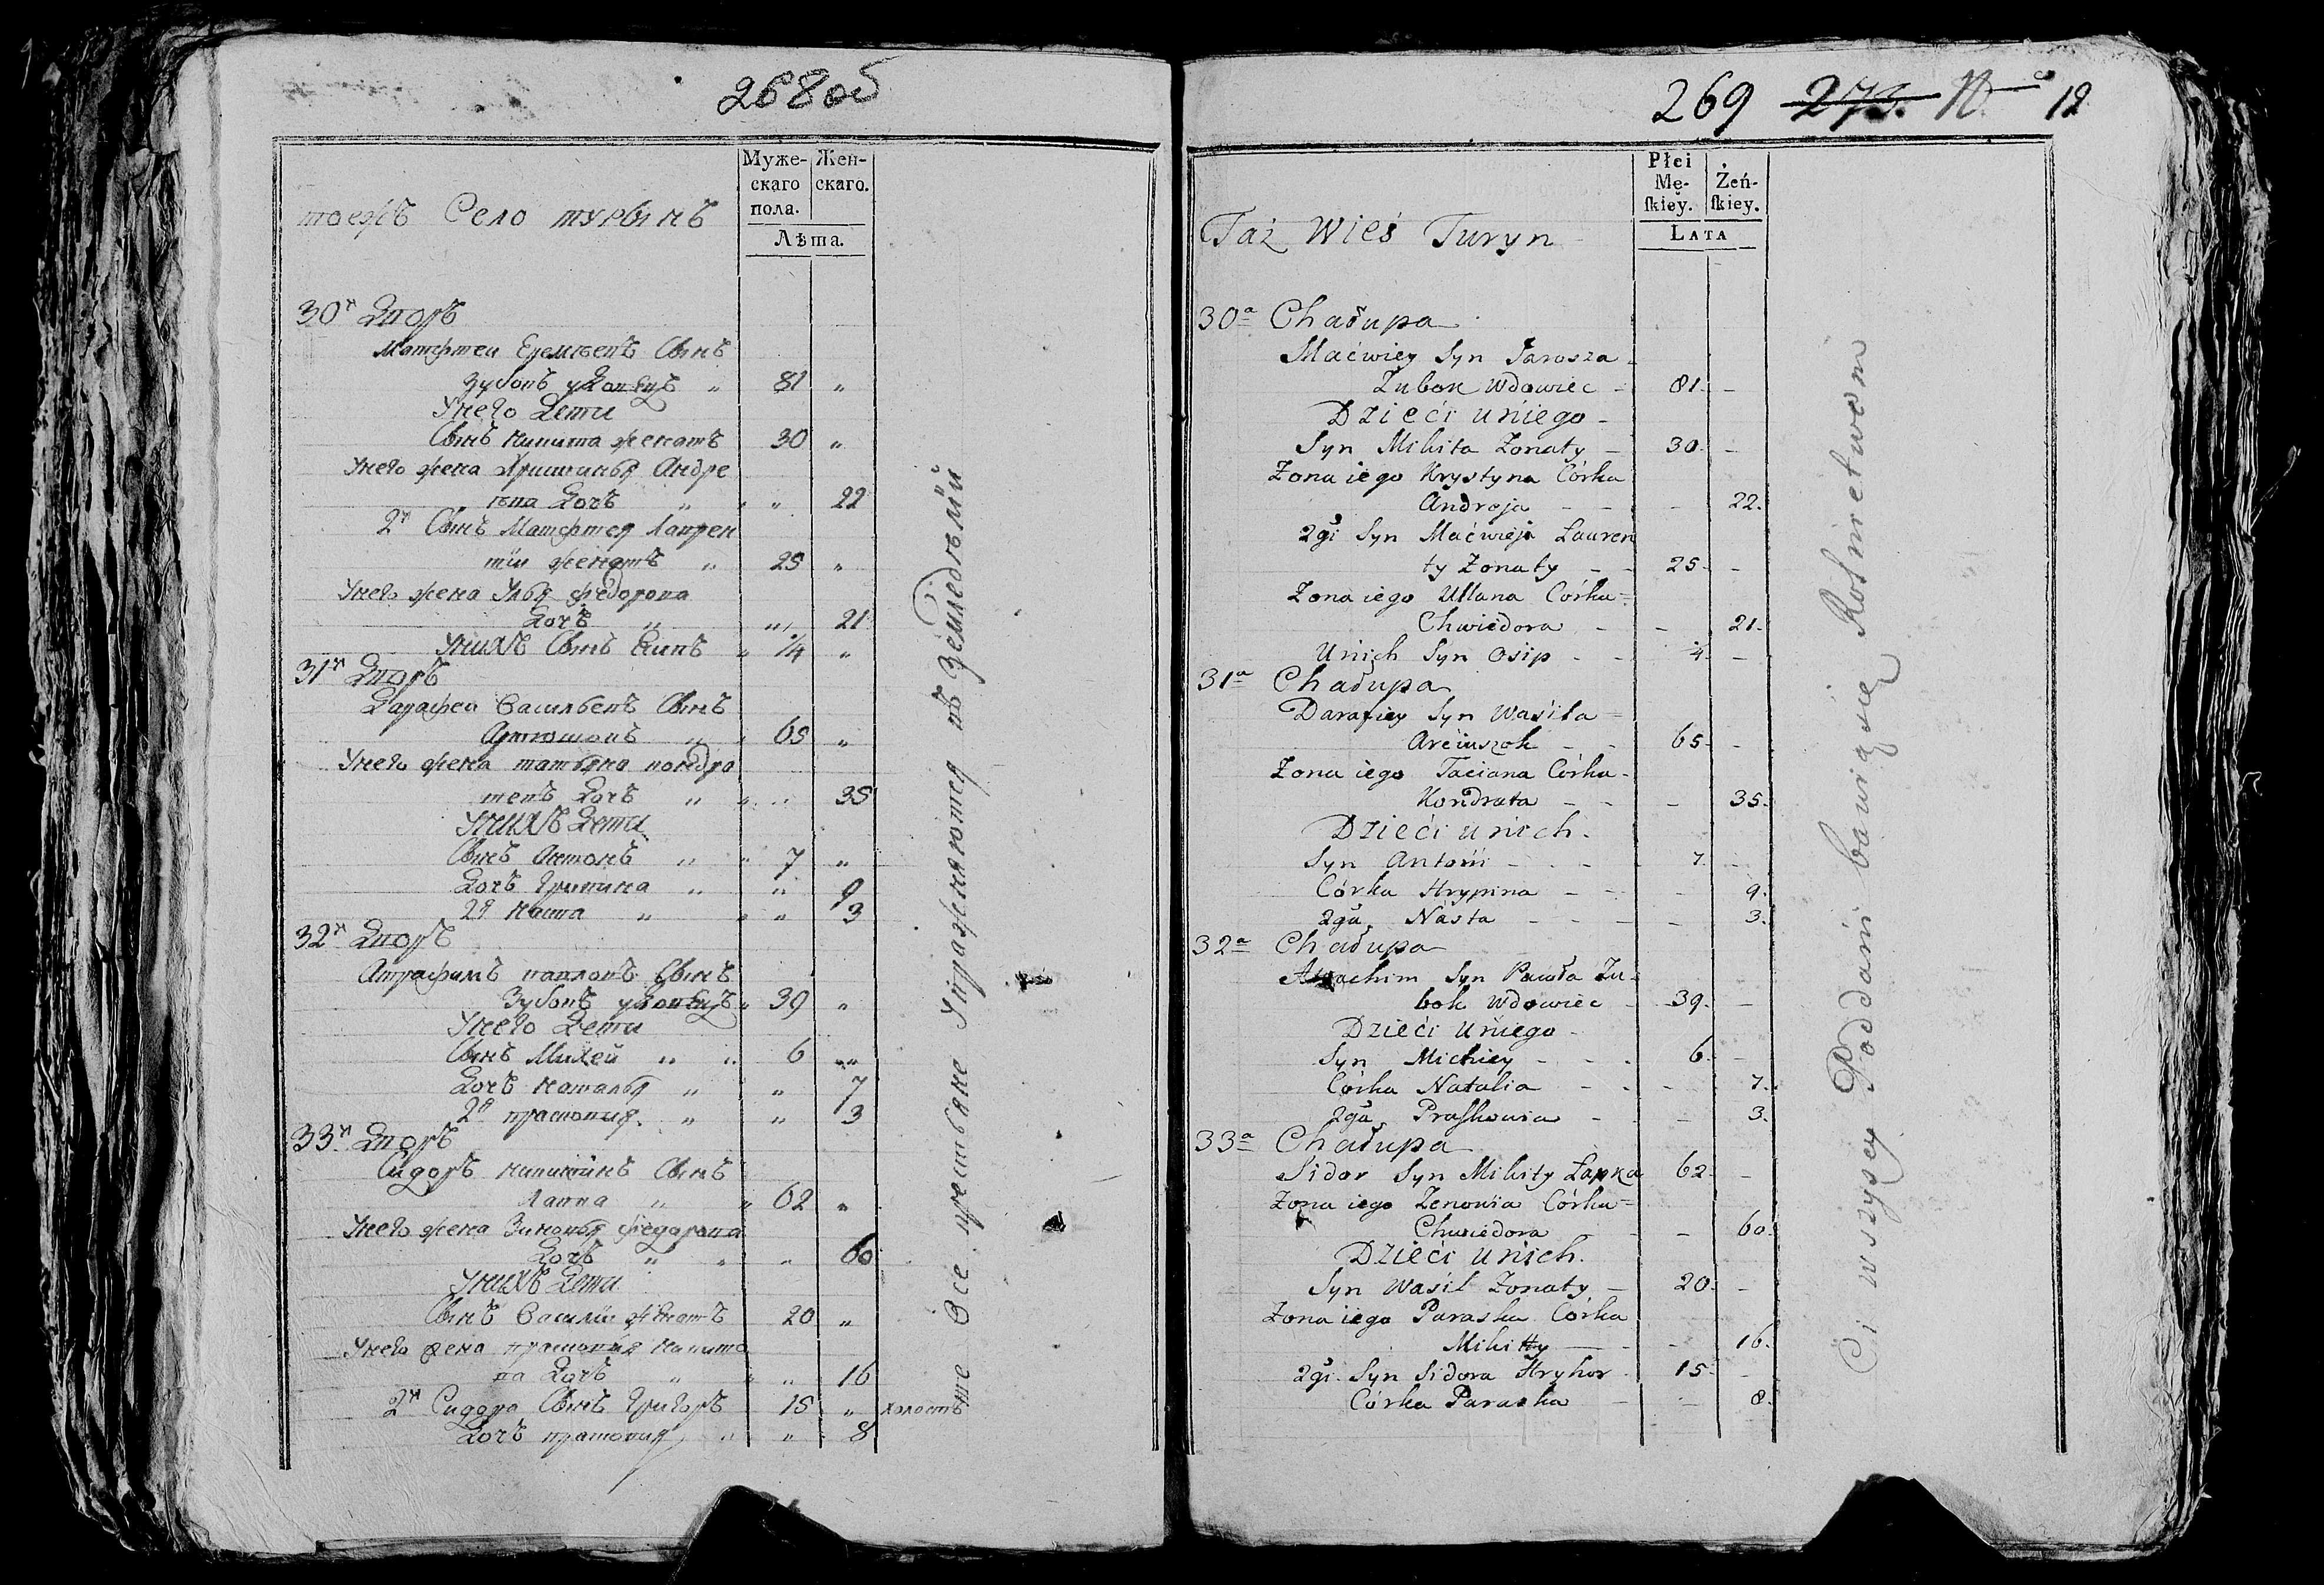 268 об
Муже- Жен-
скаго скаго.
пола.
Лѣта.
тоежъ Село турынъ
30й Дворъ
Матфтеи Еремѣевъ Сынъ
Зубовъ удовецъ " 81 "
Унего Дети
Сынъ никита женатъ 30 "
Унего жена Христинья Андре
ѣва Дочь " " 22
2й Сынъ Матфтея Лаврен
тїи женатъ " 25 "
Унего жена Улья федорова
Дочь " " 21
Унихъ Сынъ " 1/4 "
31й Дворъ
Дарафеи Васильевъ Сынъ
" 65 "
Унего жена татьяна кондра
тевъ Дочь " " 35
Унихъ Дети
Сынъ Антонъ " 7 "
Дочь Грипина " " 9
2я Наста " " 3
32й Дворъ
Атрафимъ павловъ Сынъ
Зубовъ удовецъ 39 "
Унего Дети
Сынъ Михей " 6 "
Дочь Наталья " " 7
2я прасковия " " 3
33й Дворъ
Сидоръ никитинъ Сынъ
Лапка " 62 "
Унего жена Зиновья федорова
Дочь " " 60
Унихъ Дети
Сынъ Василїи женатъ 20 "
Унего жена прасковия никито
ва Дочь " " 16
2й Сидора Сынъ Григоръ 15 " холостъ
Дочь прасковия " " 8
Все крестьяне Упражняются въ Земледѣлїй
269 273. 12
Płci Żeń-
Mę- ſkiey.
ſkiey.
LATA
Taż Wieś Turyn
30a Chałupa
Maćwiey Syn Jarosza
Zubok Wdowiec - 81. -
Dzieći uńiego -
Syn Mikita Żonaty - 30. -
Żona iego Krystyna Córka
Andreja - - - 22.
2gi Syn Maćwieja Lauren
ty Żonaty - - 25. -
Żona iego Ullana Córka =
Chwiedora - - 21.
Unich Syn Osip - - 1/4. -
31a Chałupa
Darafiey Syn Wasila =
Arciuszok - - 65. -
Żona iego Taciana Córka -
Kondrata - - - 35.
Dzieći unich.
Syn Antoni - - - 7. -
Córka Hrypina - - - 9.
2ga Nasta - - - - 3.
32a Chałupa
Atrachim Syn Pawła Zu-
bok Wdowiec - 39. -
Dzieći Uniego -
Syn Michiey - - - 6. -
Córka Natalia - - - 7.
2ga Praſkowia - - 3.
33a Chałupa
Sidor Syn Mikity Łapka 62. -
Żona iego Zenowia Córka =
Chwiedora - - 60.
Dzieći Unich.
Syn Wasil Żonaty - 20. -
Żona iego Paraska Córka
Mikity - - - 16.
2gi Syn Sidora Hryhor 15. -
Córka Paraska - - 8.
Ci wszysey Poddani bawią się Rolnictwem